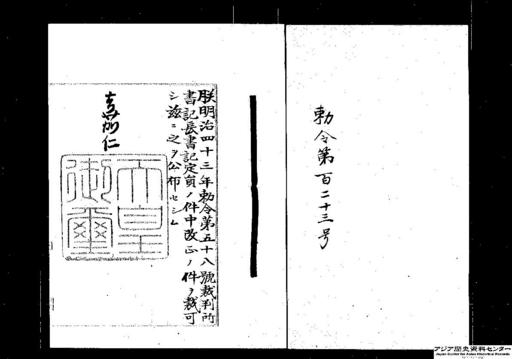 勅令第百二十三号
朕明治四十三年勅令第五十八號裁判所
書記長書記定員ノ件中改正ノ件ヲ裁可
シ茲ニ之ヲ公布セシム
嘉仁
天皇
御璽
アジア歴史資料センター
Japan Center for Asian Historical Records